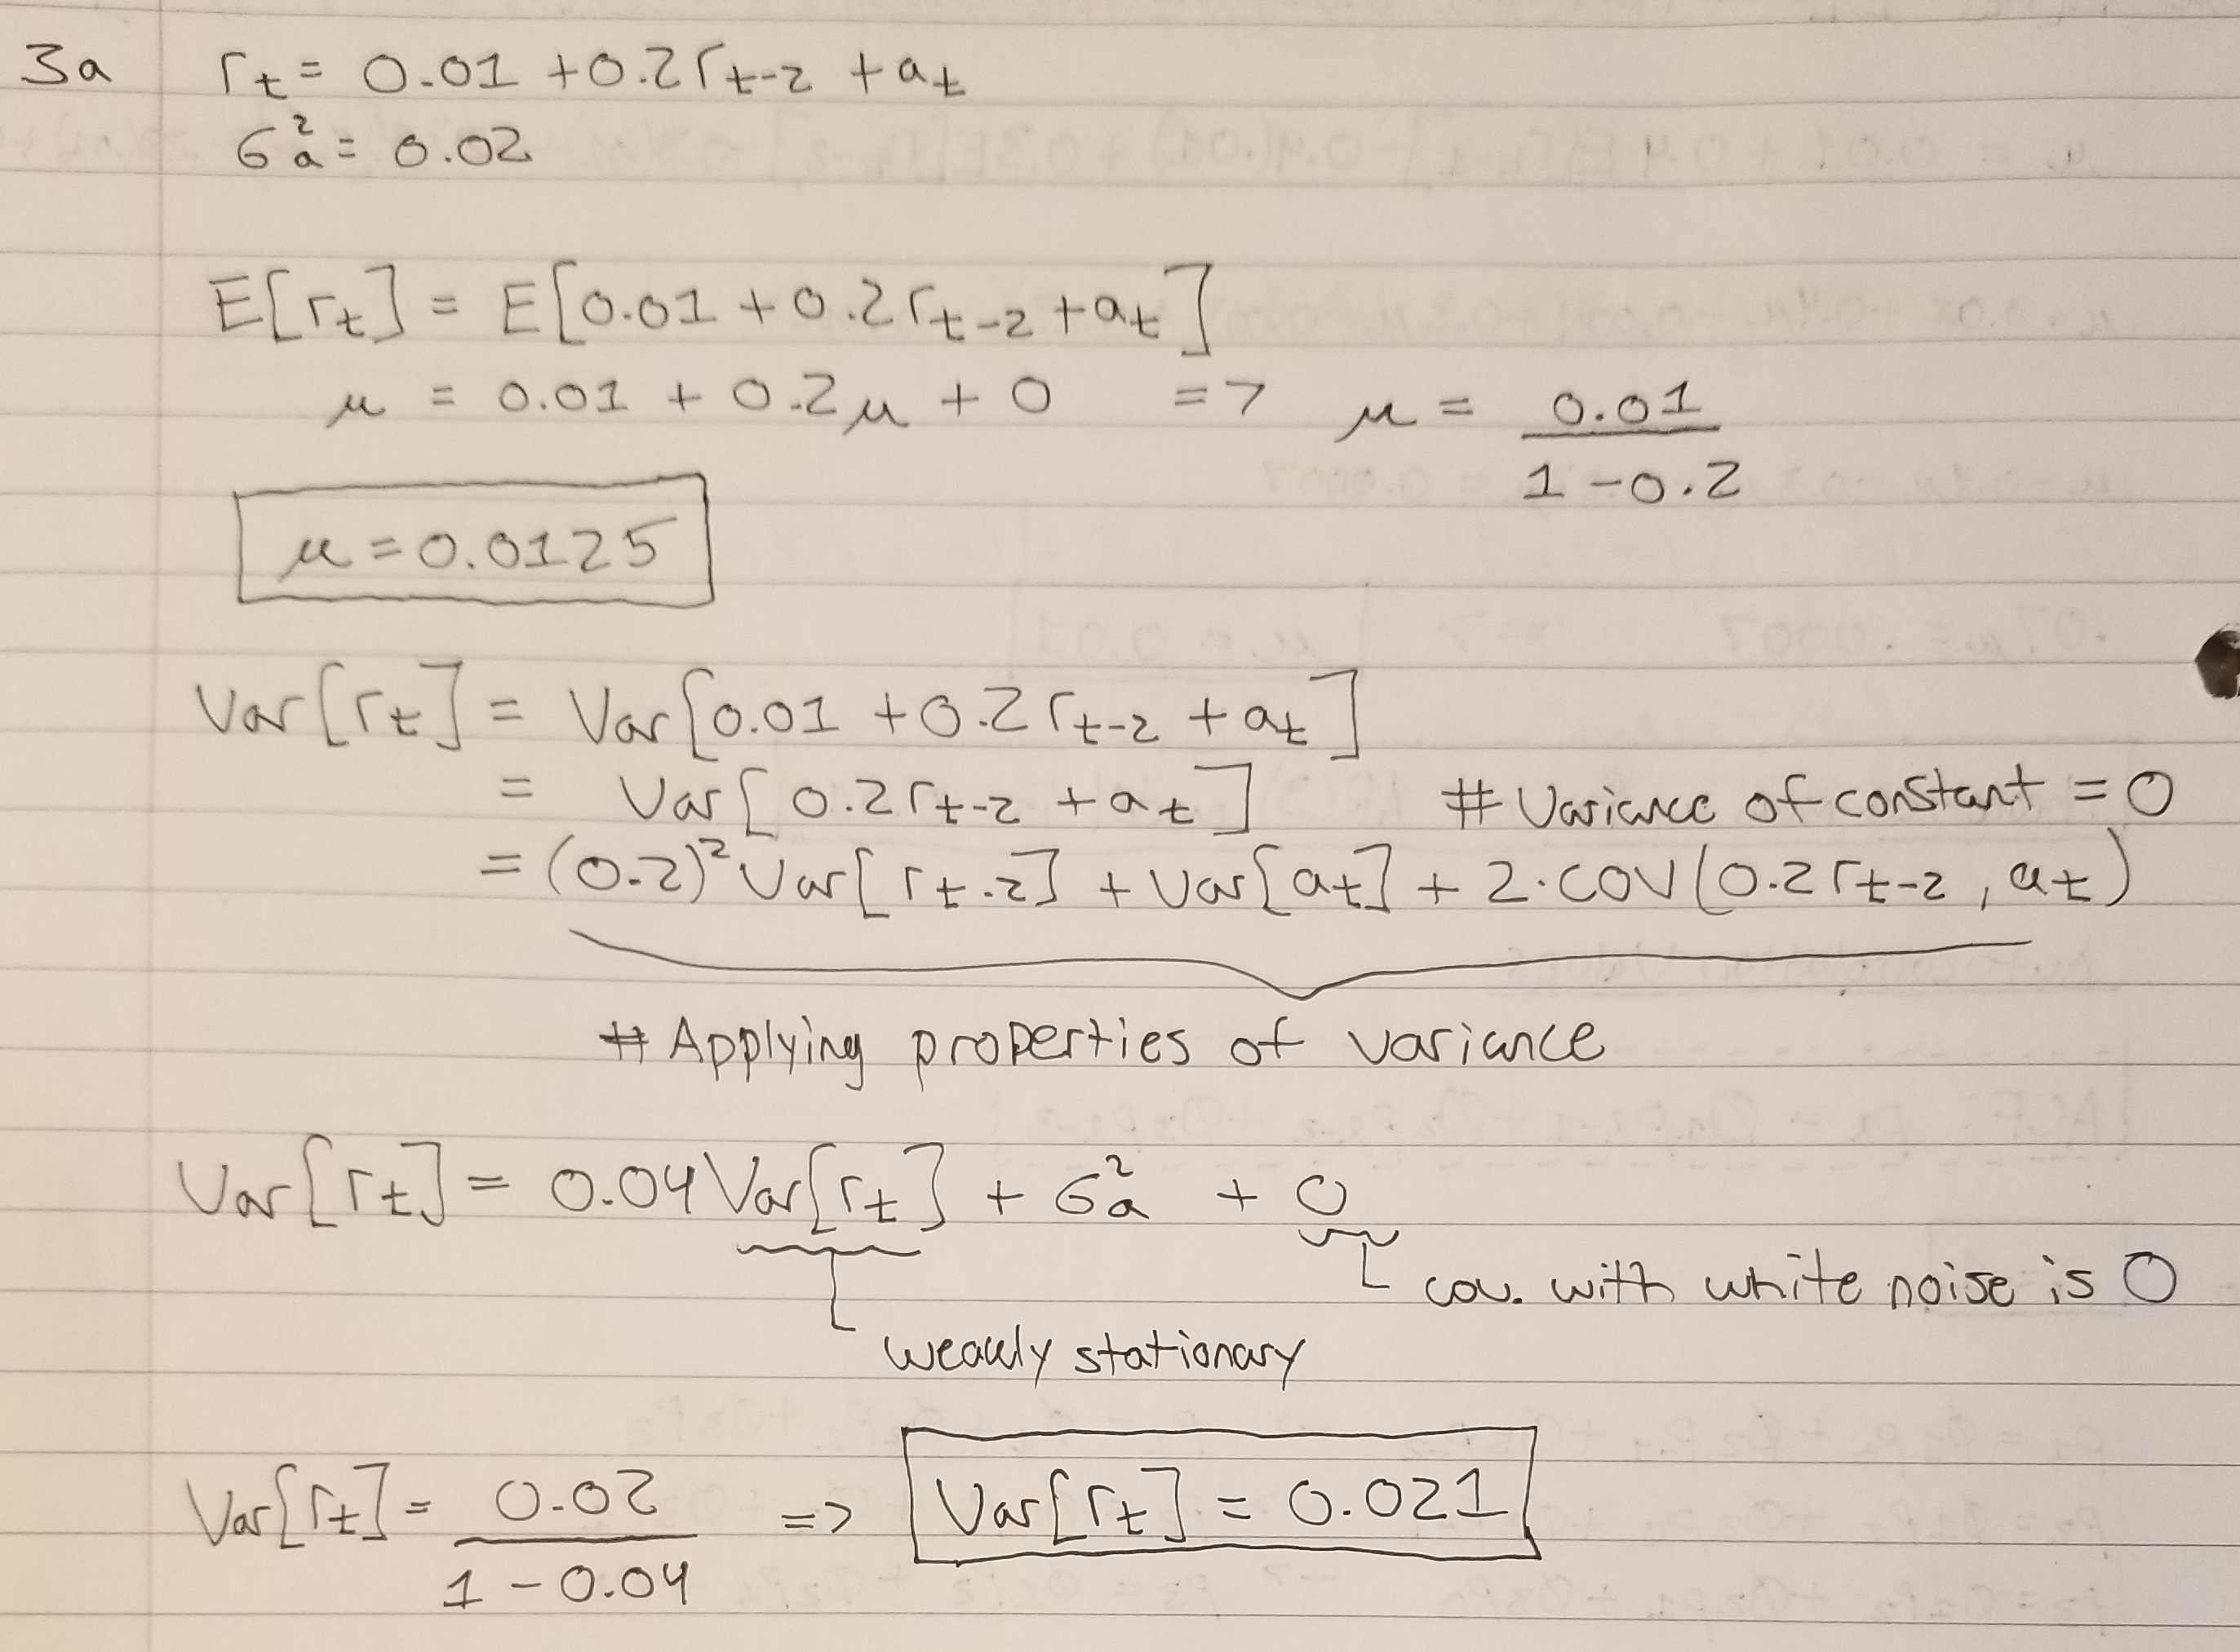 3a r_t = 0.01 + 0.2r_{t-2} + a_t
σ²_a = 0.02
E[r_t] = E[0.01 + 0.2r_{t-2} + a_t]
μ = 0.01 + 0.2μ + 0 => μ = 0.01 / (1 - 0.2)
μ = 0.0125
Var[r_t] = Var[0.01 + 0.2r_{t-2} + a_t]
= Var[0.2r_{t-2} + a_t] # Variance of constant = 0
= (0.2)² Var[r_{t-2}] + Var[a_t] + 2·COV(0.2r_{t-2}, a_t)
# Applying properties of variance
Var[r_t] = 0.04 Var[r_t] + σ²_a + 0
cov. with white noise is 0
weakly stationary
Var[r_t] = 0.02 / (1 - 0.04) => Var[r_t] = 0.021